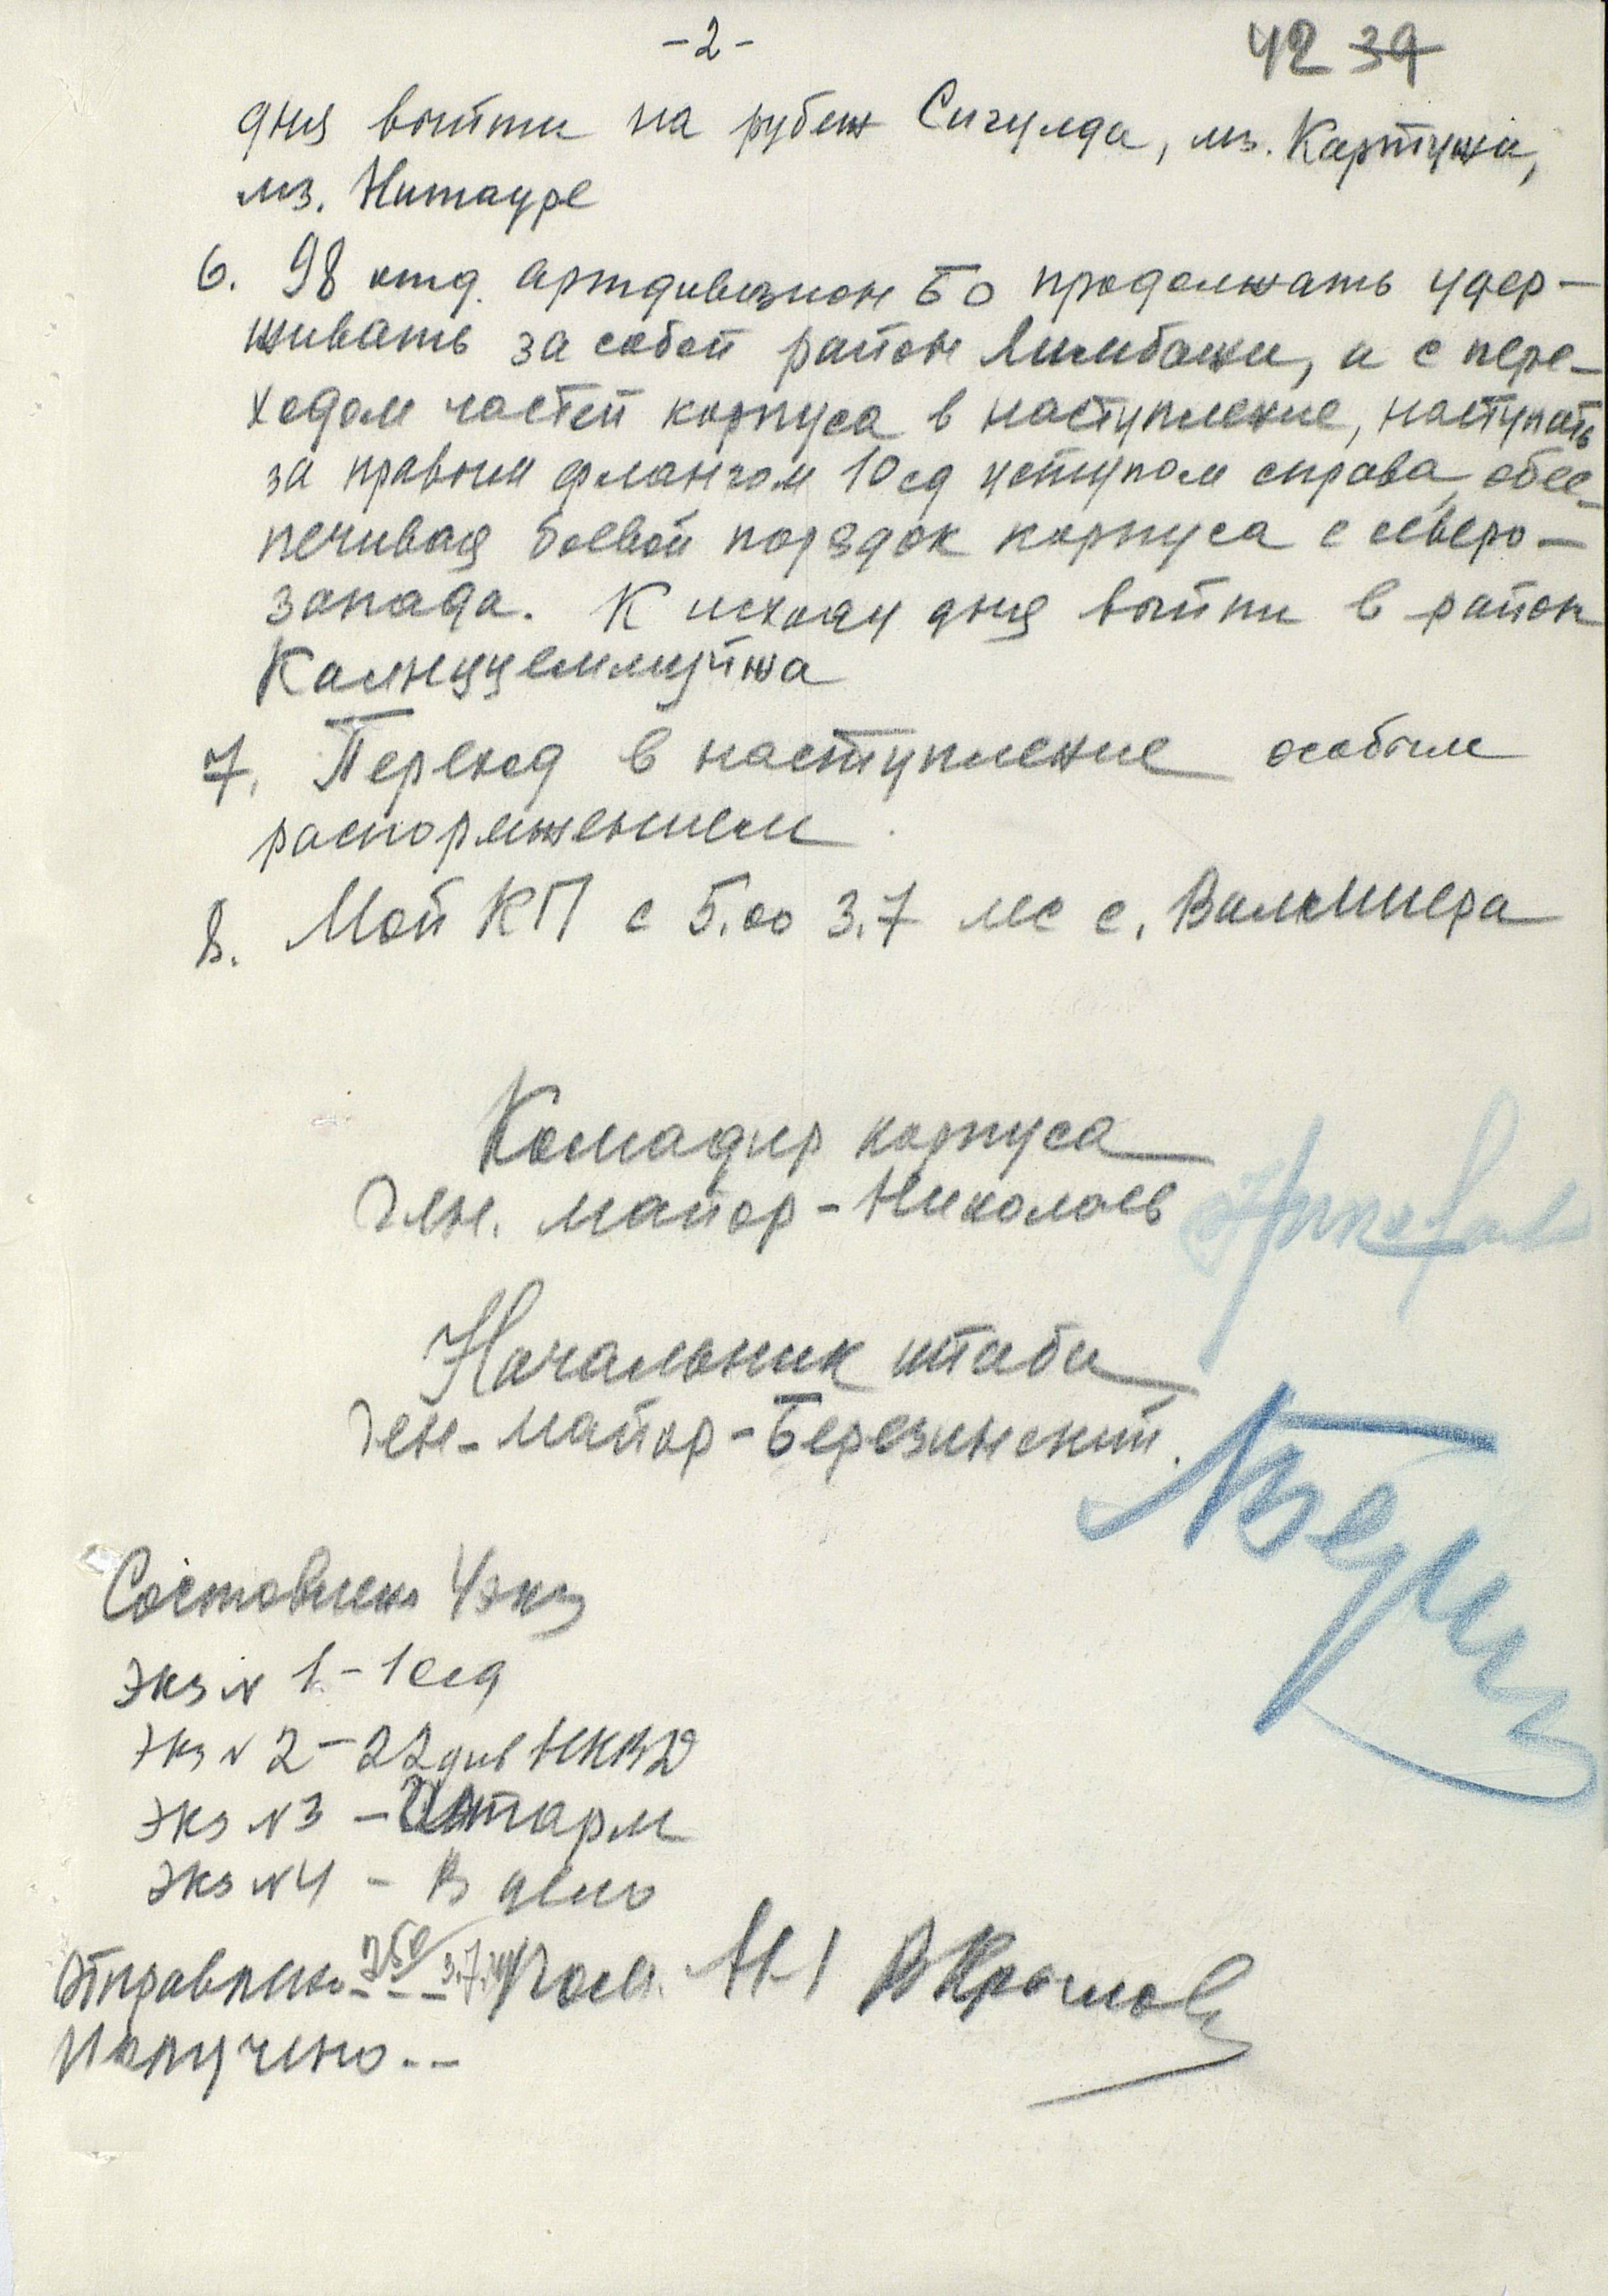 -2-
42 39
дня выйти на рубеж Сигулда, мз. Картужи,
мз. Нитауре
6. 98 отд. артдивизион БО продолжать удер-
живать за собой район Лимбажи, и с пере-
ходом частей корпуса в наступление, наступать
за правым флангом 10 сд уступом справа, обес-
печивая боевой порядок корпуса с северо-
запада. К исходу дня выйти в район
7. Переход в наступление особым
распоряжением.
8. Мой КП с 5.00 3.7 лес с. Валмиера
Комадир корпуса
Ген. майор - Николаев
Начальник штаба
Ген-майор - Березинский.
Составлено 4 экз
Экз № 1 - 10 сд
Экз № 2 - 22 див НКВД
Экз № 3 - Штарм
Экз № 4 - В дело
Отправлено 3.7. Пом. НО1 ВКрылов
Получено --